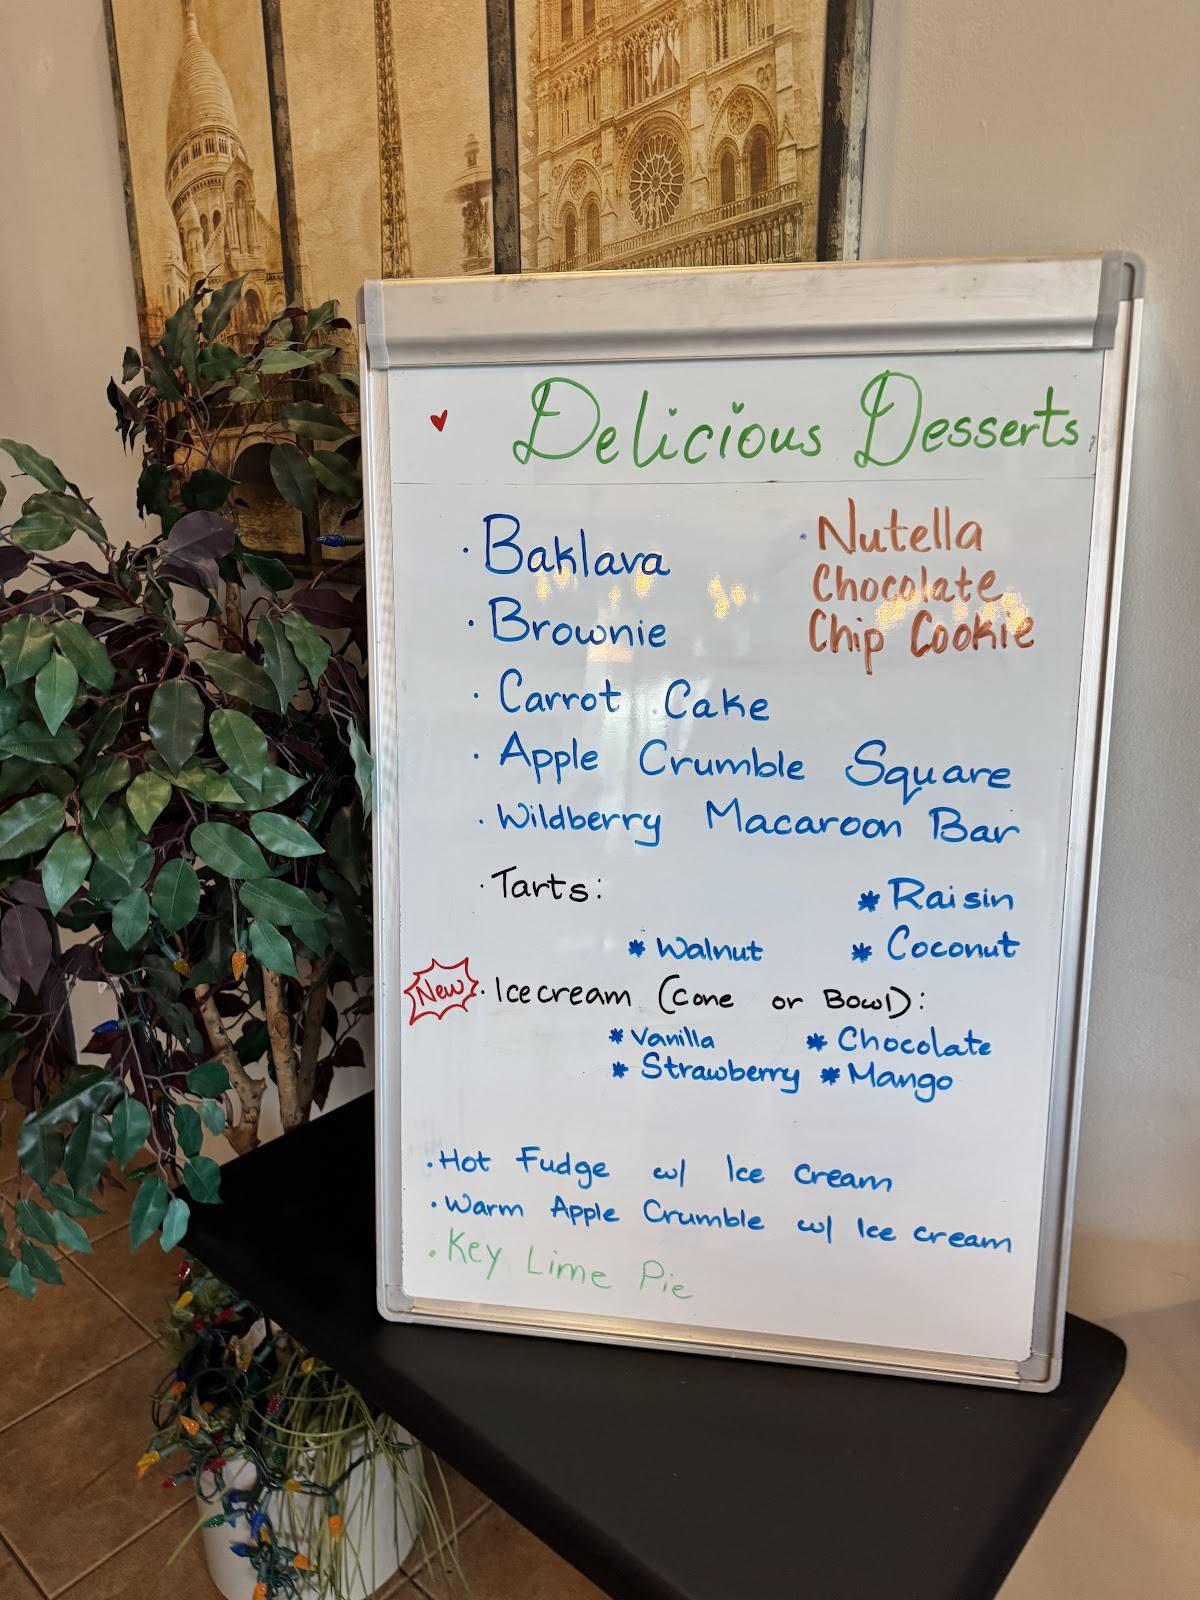 Delicious Desserts
· Baklava
· Nutella
Chocolate
Chip Cookie
· Brownie
· Carrot Cake
· Apple Crumble Square
· Wildberry Macaroon Bar
· Tarts:
* Raisin
* Walnut * Coconut
New · Icecream (Cone or Bowl):
* Vanilla * Chocolate
* Strawberry * Mango
· Hot Fudge w/ Ice cream
· Warm Apple Crumble w/ Ice cream
· Key Lime Pie